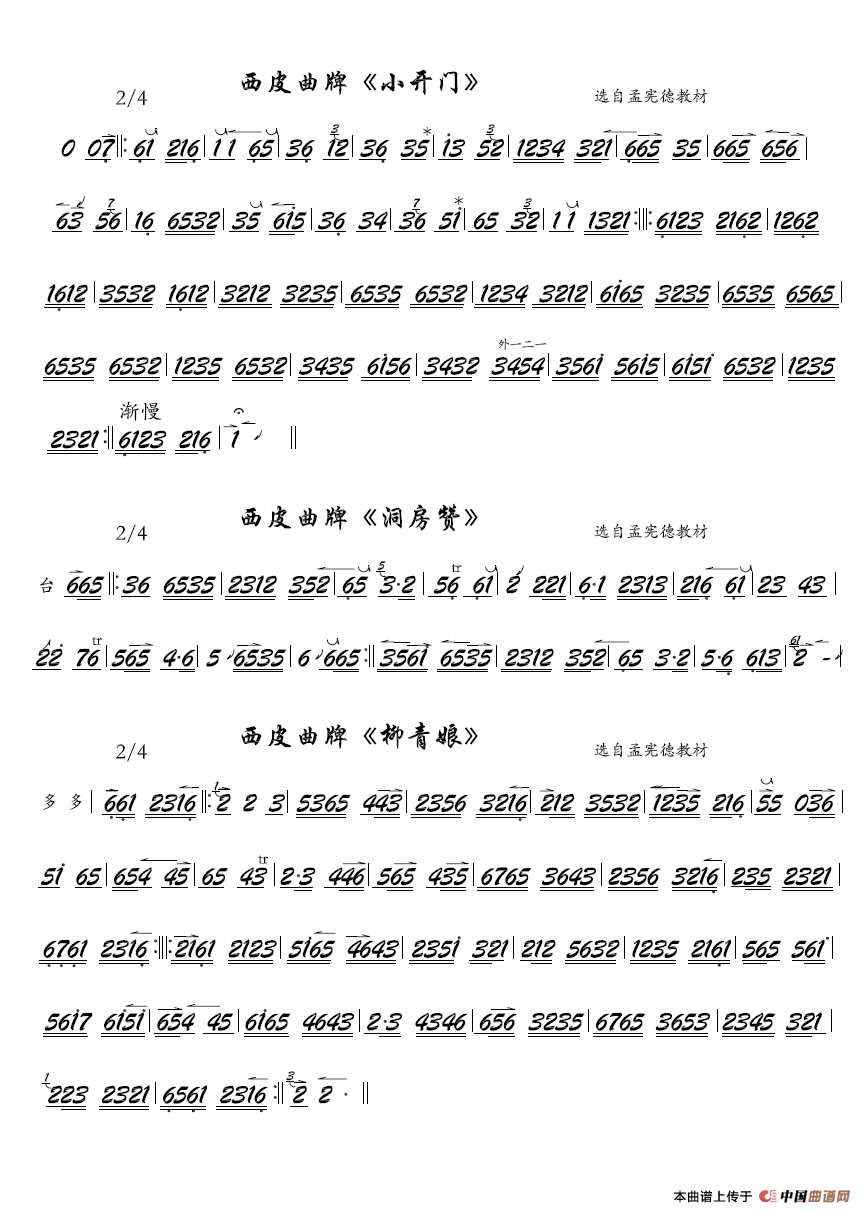 西皮曲牌《小开门》
2/4 选自孟宪德教材
0 07‖:61 216|11 65|36 12|36 35|i3 52|1234 321|665 35|665 656|
63 56|16 6532|35 6i5|36 34|36 5i|65 32|11 1321:‖:6123 2162|1262
1612|3532 1612|3212 3235|6535 6532|1234 3212|6i65 3235|6535 6565|
外一二一
6535 6532|1235 6532|3435 6i56|3432 3454|356i 56i5|6i5i 6532|1235
渐慢
2321:‖6123 216|1 ‖
西皮曲牌《洞房赞》
2/4 选自孟宪德教材
台 665‖:36 6535|2312 352|65 3·2|56 61|2 221|6·1 2313|216 61|23 43|
22 76|565 4·6|5 6535|6 665:‖3561 6535|2312 352|65 3·2|5·6 613|2 -|
西皮曲牌《柳青娘》
2/4 选自孟宪德教材
多 多|661 2316‖:2 2 3|5365 443|2356 3216|212 3532|1235 216|55 036|
5i 65|654 45|65 43|2·3 446|565 435|6765 3643|2356 3216|235 2321|
6761 2316:‖:2161 2123|5i65 4643|235i 321|212 5632|1235 2161|565 56i|
56i7 6i5i|654 45|6i65 4643|2·3 4346|656 3235|6765 3653|2345 321|
223 2321|6561 2316:‖2 2 · ‖
本曲谱上传于 中国曲谱网